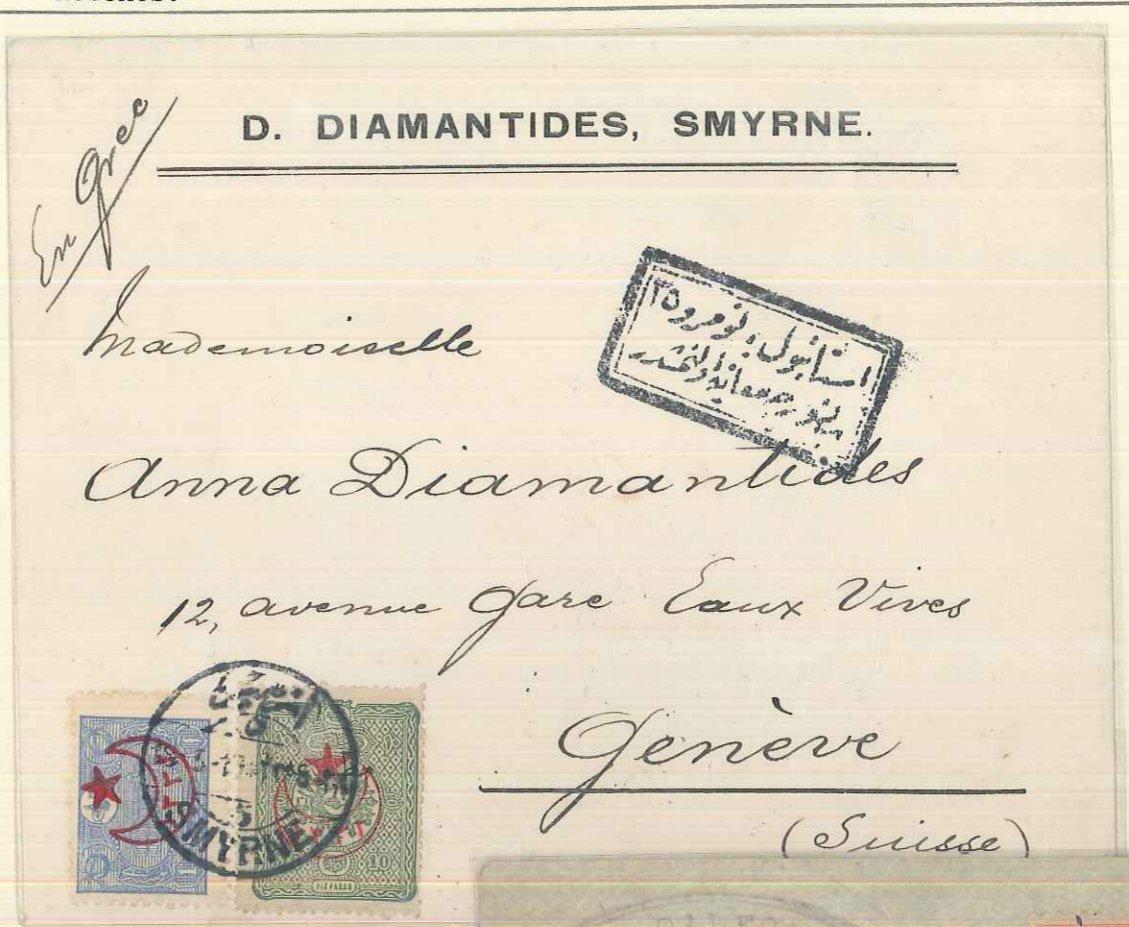 En Grec
D. DIAMANTIDES, SMYRNE.
استانبول، نومرو ٢٥
Mademoiselle
Anna Diamantides
12, avenue Gare Eaux Vives
Genève
(Suisse)
SMYRNE
10
10 PARAS